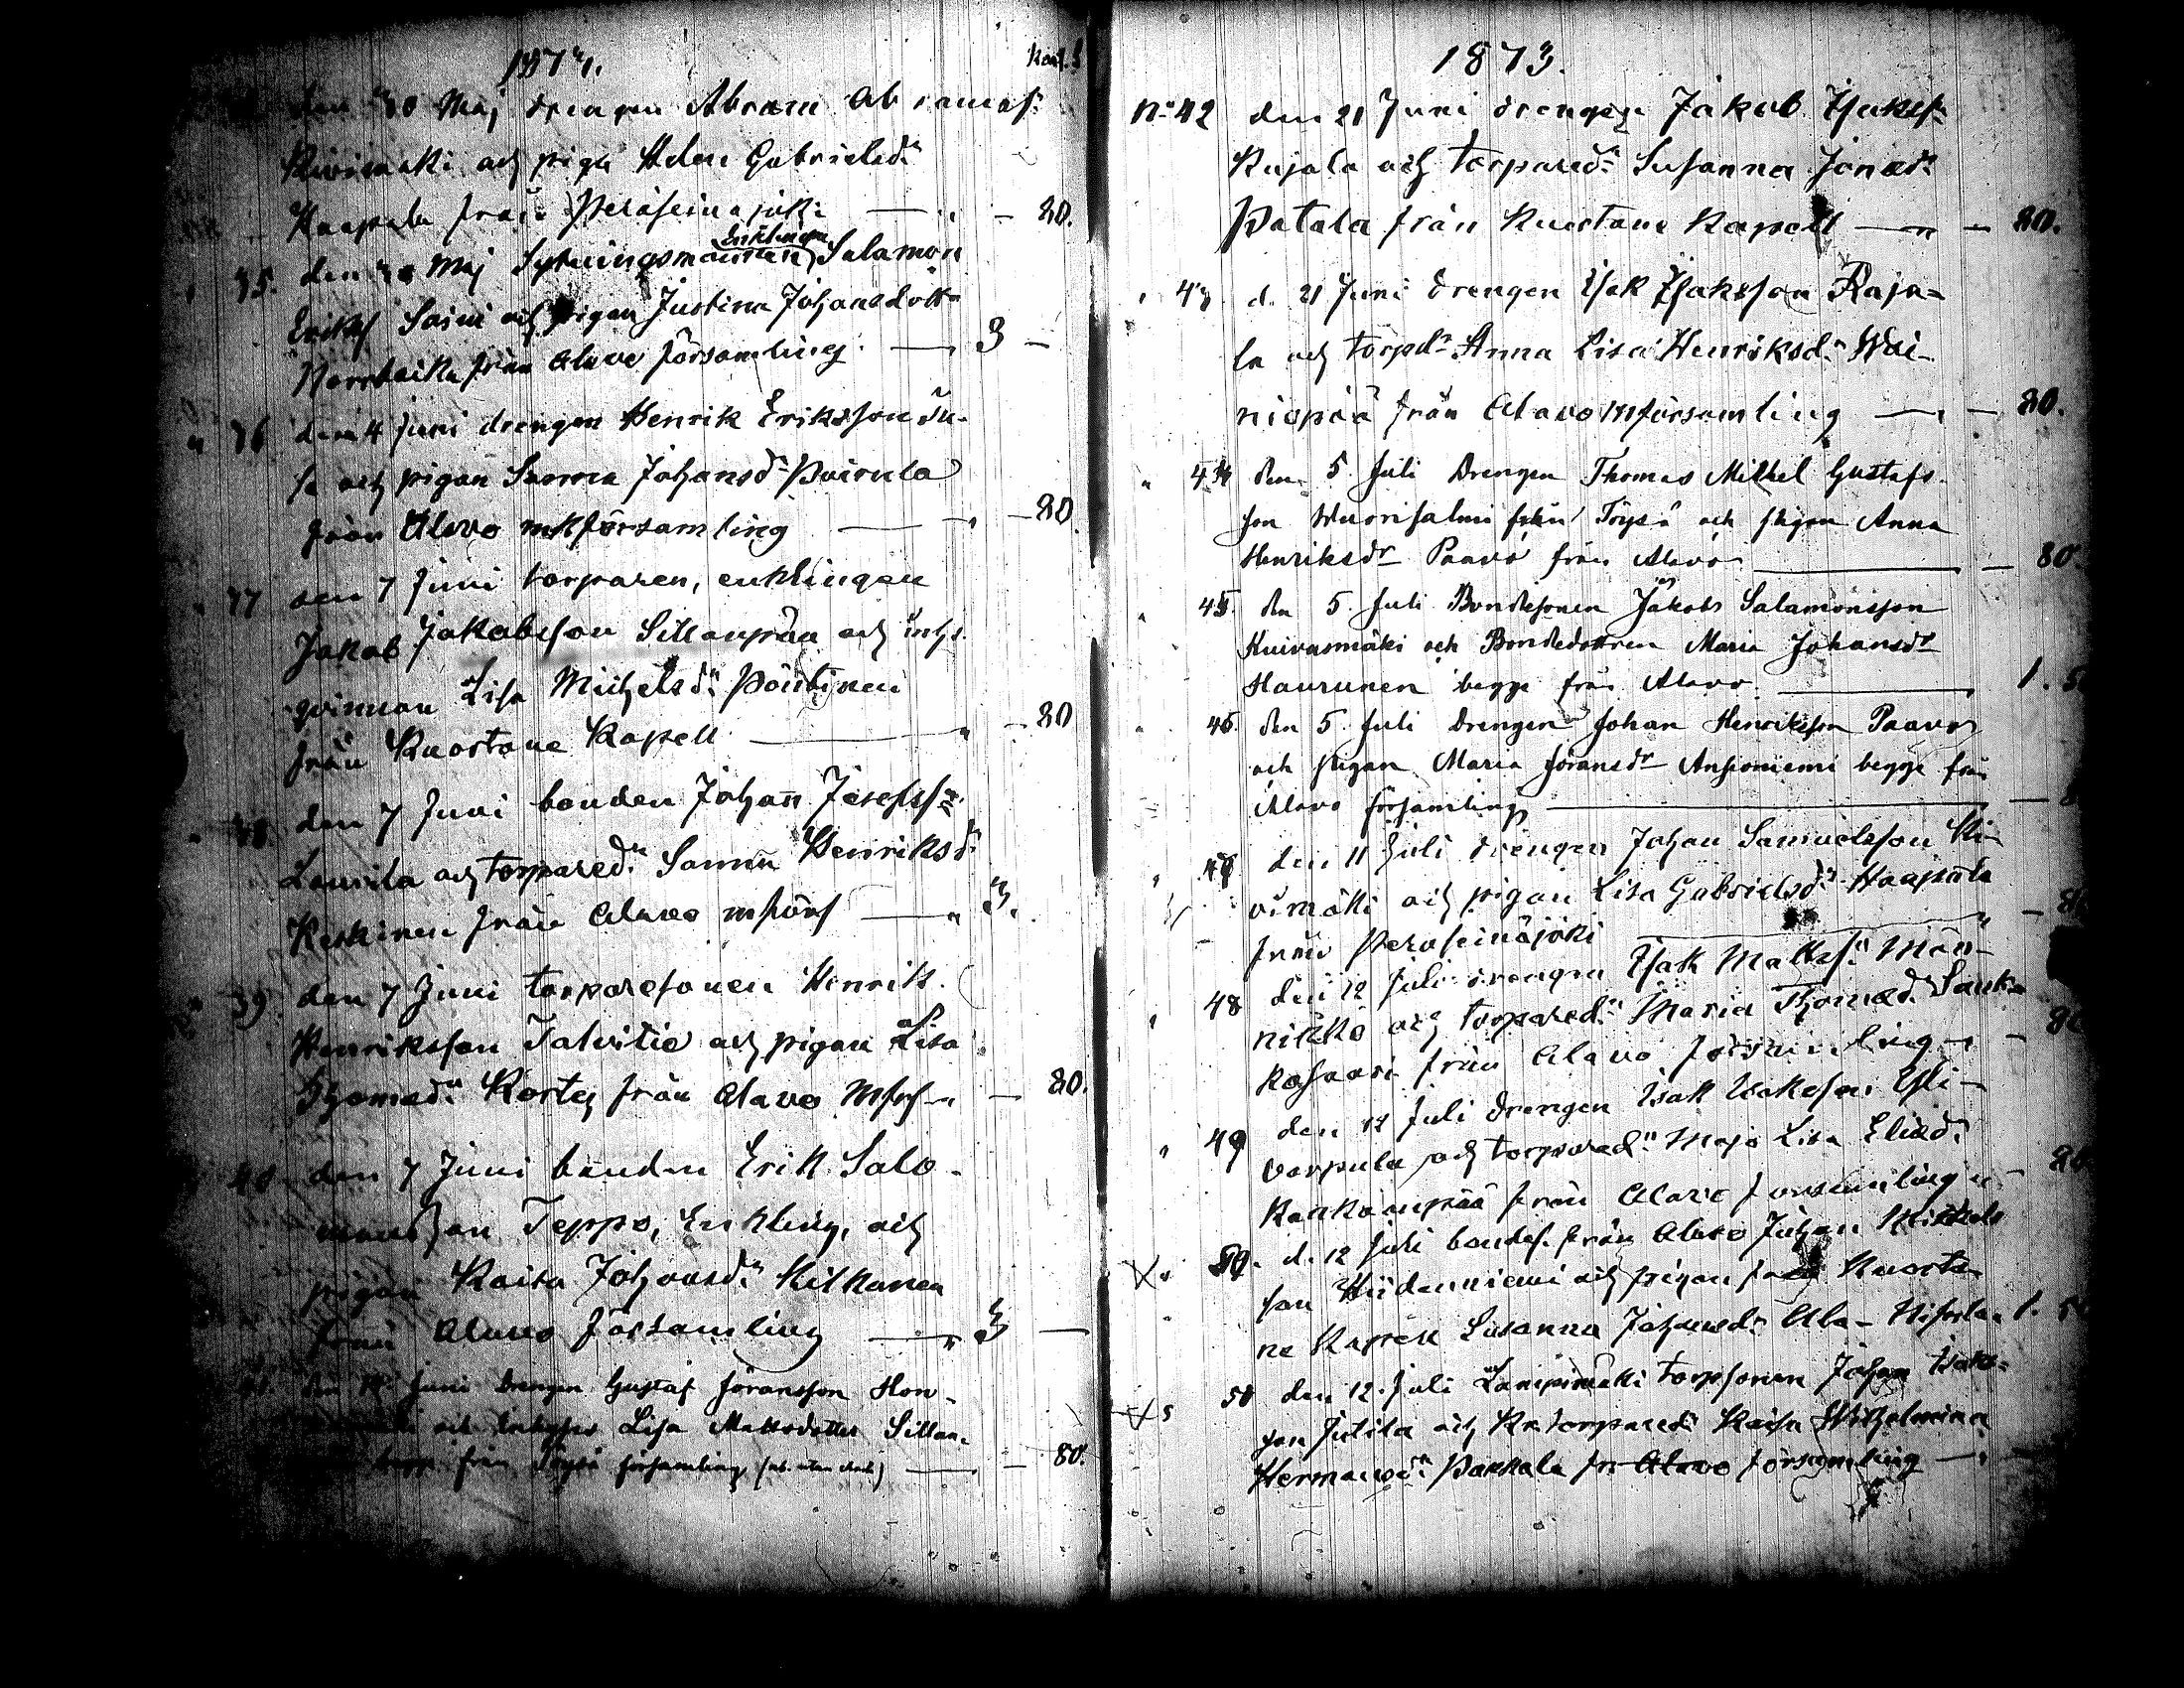 187
den 30 Maj drengen Abram Abramsf:
Kivimäki och pigan Helena Gabrielsdr
Haapala från Peräseinäjoki — " — 80.
Enklingen
" 35. den 30 Maj Salamon
Erikss Saini och pigan Justina Johansdotter
från Alavo församling. — " 3 —
" 36 den 4 Juni drengen Henrik Eriksson Tu-
sa och pigan Sanna Johansdr Poirula
från Alavo mkförsamling — " — 80
" 37 den 7 Juni torparen, enklingen
Jakob Jakobsson Sillanpää och inhs.
qvinnan Lisa Michelsdr Pöntinen
från Kuortane Kapell — " — 80
" 38 den 7 Juni bonden Johan Josefss:
Laurila och torpared: Sanna Henriksdr
Keskinen från Alavo mförs — " 3.
" 39 den 7 Juni torparesonen Henrik
Henriksson Talvitie och pigan Lisa
Thomasdr Kortes från Alavo Mfrs — " — 80.
40 den 7 Juni bonden Erik Salo-
monsson Teppo, Enkling, och
pigan Kaisa Johansdr Kitkanen
från Alavo Församling — " 3 —
41. den Juni Drengen Gustaf Göransson Hon-
och Lisa Mattsdotter Sillan-
begge från Töysä församling — — 80.
1873.
No 42 den 21 Juni drengen Jakob Isakss:
Rajala och torparedr Susanna Jonasdr
Patala från Kuortane Kapell — " — 80.
" 43 d. 21 Juni drengen Isak Isaksson Raja-
la och torpdr Anna Lisa Henriksdr Wai-
niopää från Alavo mförsamling — " — 80.
" 44 den 5 Juli Drengen Thomas Mikkel Gustafs-
son Wuorisalmi från Töysä och pigan Anna
Henriksdr Paavo från Alavo — — 80.
" 45. den 5. Juli Bondesonen Jakob Salamonsson
Kuivasmäki och Bondedottren Maria Johansdr
Haurunen begge från Alavo. — 1. 5
" 46. den 5. Juli Drengen Johan Henriksson Paavo
och pigan Maria Göransdr Ansioniemi begge från
Alavo församling — — 8
" 47 den 11 Juli drengen Johan Samuelsson Ki-
vimäki och pigan Lisa Gabrielsdr Haapala
från Peräseinäjoki — " — 80
" 48 den 12 Juli drengen Isak Mattss: Män-
nikkö och torparedr Maria Thomasd. Sauk-
kosaari från Alavo församling — " — 80
" 49 den 12 Juli Drengen Isak Isaksson Yli-
varpula och torparedr Maja Lisa Eliedr
Kankaanpää från Alavo församling " — 80
X " 50. d. 12 Juli bondes. från Alavo Johan Mikkels-
son Hiidenniemi och pigan från Kuorta-
ne Kapell Susanna Johansdr Ala- 1. 50
X " 51 den 12. Juli torpsonen Johan Isaks-
son Jutila och torparedr Kaisa Wilhelmina
Hermansdr Pakkala fr. Alavo församling — "